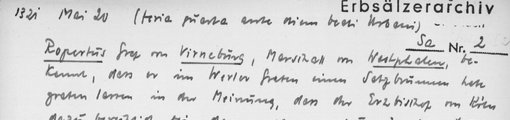 Erbsälzerarchiv
1321 Mai 20 (feria quarta ante diem beati Urbani)
Sa Nr. 2
Ropertus Graf von Virneburg, Marschall von Westphalen, be-
kennt, dass er im Werler Graten einen Salzbrunnen habe
graben lassen in der Meinung, dass der Erzbischof von Köln
dazu